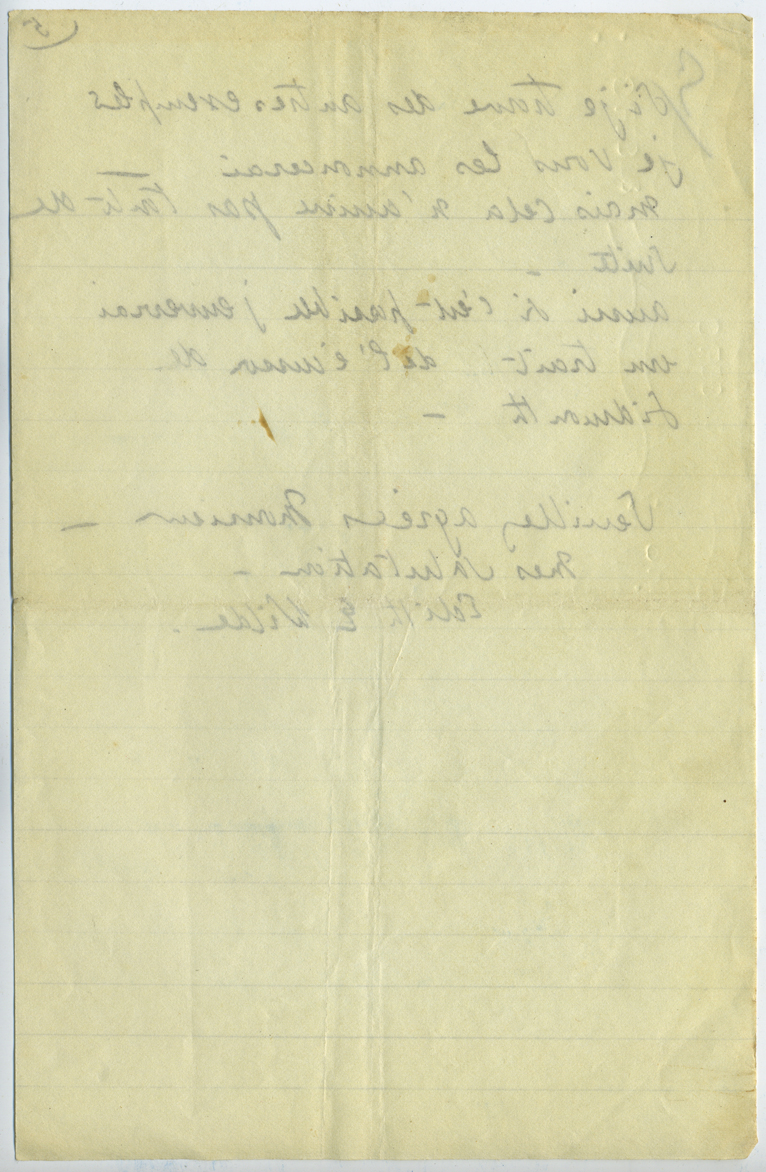 5)
Si je trouve des autres exemples
je vous les annoncerai —
mais cela n'arrive pas tout de
suite —
aussi si c'est possible j'enverrai
un trait de l'
Sidmonth —
Veuillez agréer Monsieur —
mes salutation —
Edith E Wilde.